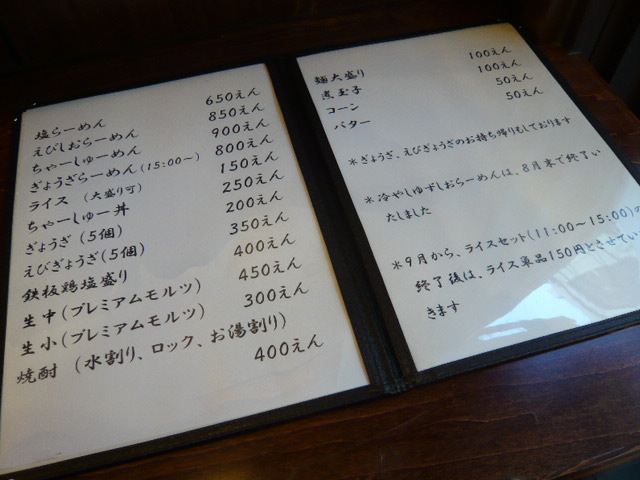 塩らーめん 650えん
えびしおらーめん 850えん
ちゃーしゅーめん 900えん
ぎょうざらーめん(15:00~) 800えん
ライス (大盛り可) 150えん
ちゃーしゅー丼 250えん
ぎょうざ(5個) 200えん
えびぎょうざ(5個) 350えん
鉄板鶏塩盛り 400えん
生中(プレミアムモルツ) 450えん
生小(プレミアムモルツ) 300えん
焼酎 (水割り、ロック、お湯割り) 400えん
麺大盛り 100えん
煮玉子 100えん
コーン 50えん
バター 50えん
*ぎょうざ、えびぎょうざのお持ち帰りもしております
*冷やしゆずしおらーめんは、8月末で終了い
たしました
*9月から、ライスセット(11:00~15:00)の
終了後は、ライス単品150円とさせてい
きます